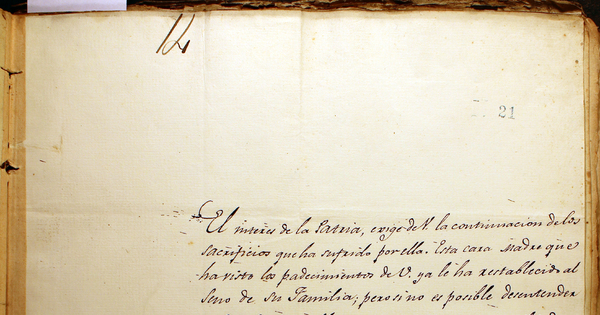 14
21
El interes de la Patria, exige de V. la continuacion de los
sacrificios que ha sufrido por ella. Esta cara Madre que
ha visto los padecimientos de V. ya le ha restablecido al
seno de su Familia; pero si no es posible desentender